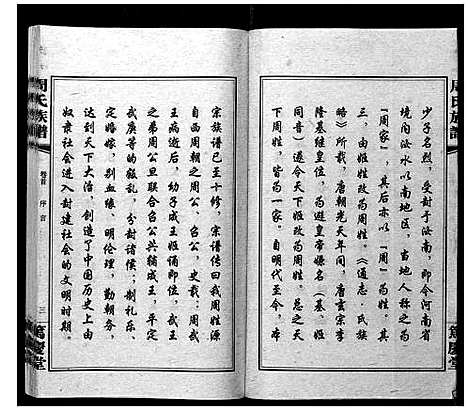 少子名烈，受封于汝南，即今河南省
境内汝水以南地区，当地人称之为
「周家」，其后亦以「周」为姓。其
三，由姬姓改为周姓。《通志·氏族
略》所载，唐朝先天年间，唐玄宗李
隆基继皇位，为避皇帝嫌名（基、姬
同音）遂令天下姬改为周姓。总之天
下周姓，皆为一家。自明代至今，本
周氏族谱
笃庆堂
宗族谱已至十修，宗谱传曰我周姓源
自西周朝之周公、召公，史载：周武
王病逝后，幼子成王姬诵即位，武王
之弟周公旦联合召公共辅成王，平定
武庚等的叛乱，分封诸侯；制礼乐、
定婚嫁，别血缘、明伦理，勤朝务，
达到天下大治，创造了中国历史上由
奴隶社会进入封建社会的文明时期。
周氏族谱
卷首 序言
三
笃庆堂